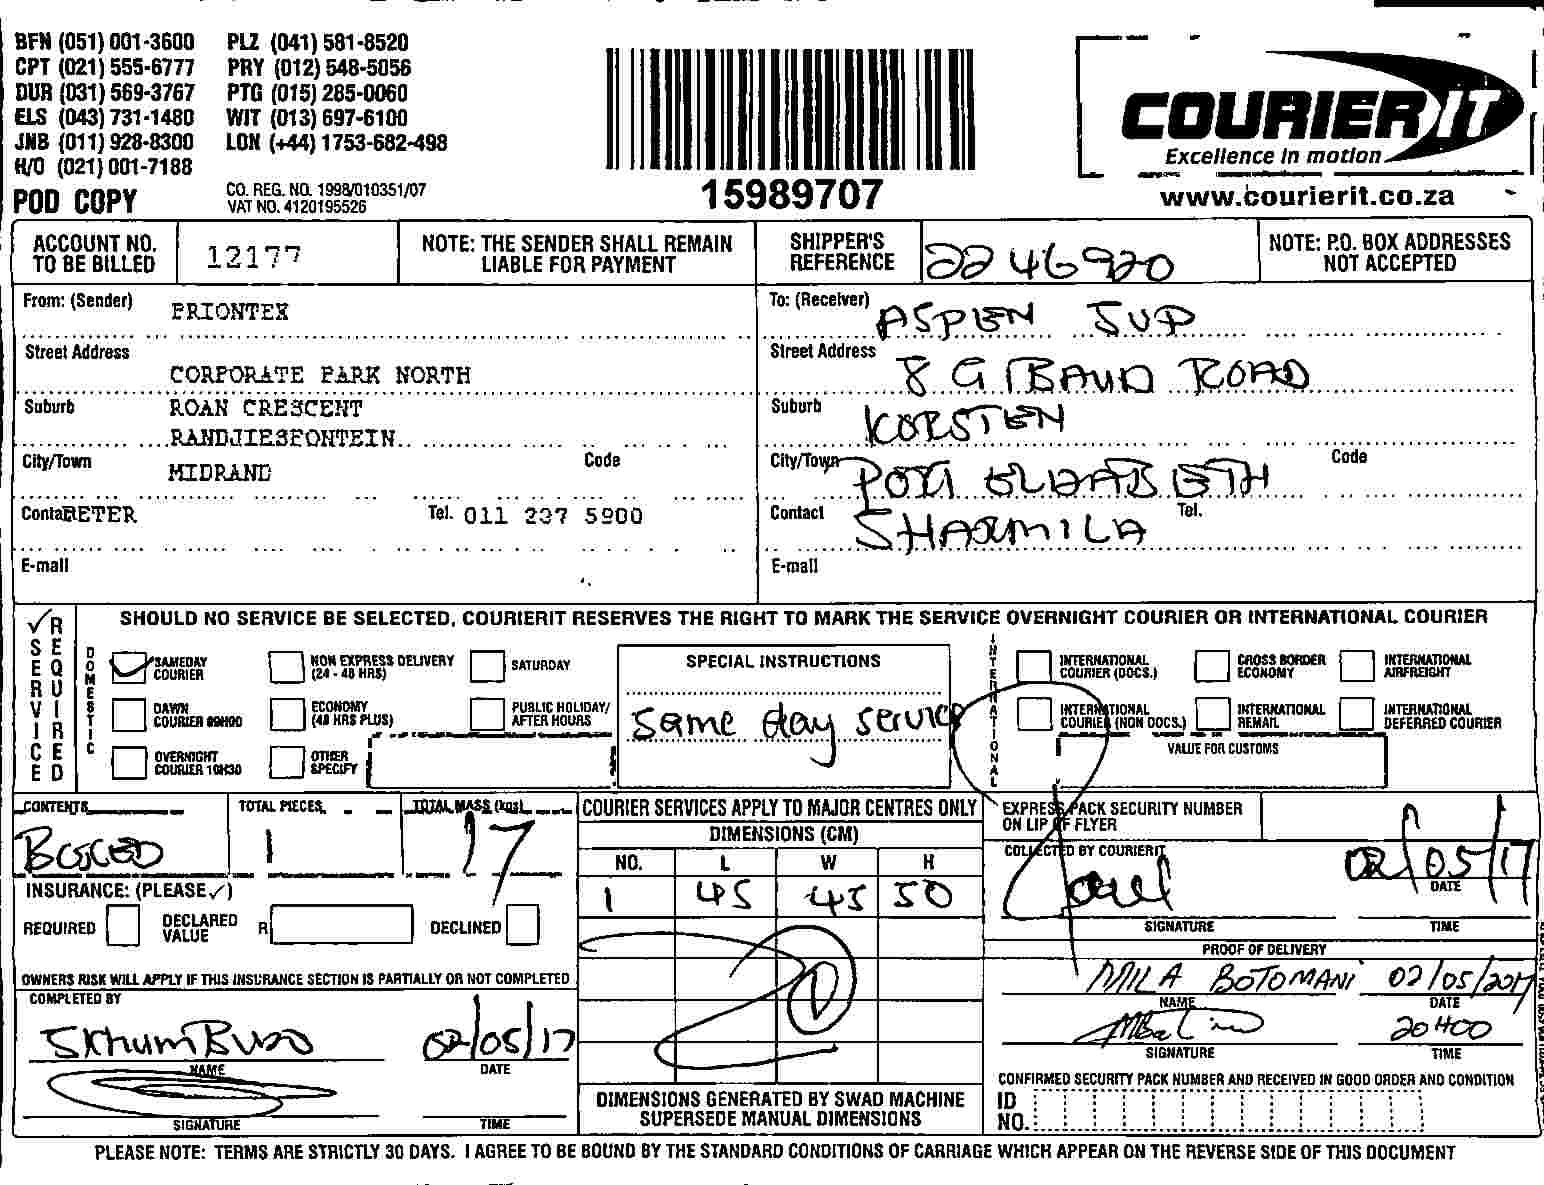 BFN (051) 001-3600 PLZ (041) 581-8520
CPT (021) 555-6777 PRY (012) 548-5056
DUR (031) 569-3767 PTG (015) 285-0060
ELS (043) 731-1480 WIT (013) 697-6100
JNB (011) 928-8300 LON (+44) 1753-682-498
H/O (021) 001-7188
POD COPY
CO. REG. NO. 1998/010351/07
VAT NO. 4120195526
15989707
COURIER IT
Excellence in motion
www.courierit.co.za
ACCOUNT NO. TO BE BILLED 12177
NOTE: THE SENDER SHALL REMAIN LIABLE FOR PAYMENT
SHIPPER'S REFERENCE 2246920
NOTE: P.O. BOX ADDRESSES NOT ACCEPTED
From: (Sender) PRIONTEX
Street Address
CORPORATE PARK NORTH
Suburb ROAN CRESCENT
RANDJIESFONTEIN
City/Town MIDRAND Code
Contact PETER Tel. 011 237 5900
E-mail
To: (Receiver) ASPEN SVP
Street Address 8 GIBAUD ROAD
Suburb KORSTEN
City/Town PORT ELIZABETH Code
Contact SHARMILA Tel.
E-mail
SHOULD NO SERVICE BE SELECTED, COURIERIT RESERVES THE RIGHT TO MARK THE SERVICE OVERNIGHT COURIER OR INTERNATIONAL COURIER
SERVICE REQUIRED
DOMESTIC
SAMEDAY COURIER
NON EXPRESS DELIVERY (24 - 48 HRS)
SATURDAY
DAWN COURIER 09H00
ECONOMY (48 HRS PLUS)
PUBLIC HOLIDAY/ AFTER HOURS
OVERNIGHT COURIER 10H30
OTHER SPECIFY
SPECIAL INSTRUCTIONS
same day service
INTERNATIONAL
INTERNATIONAL COURIER (DOCS.)
CROSS BORDER ECONOMY
INTERNATIONAL AIRFREIGHT
INTERNATIONAL COURIER (NON DOCS.)
INTERNATIONAL REMAIL
INTERNATIONAL DEFERRED COURIER
VALUE FOR CUSTOMS
CONTENTS
TOTAL PIECES 1
TOTAL MASS (kgs) 17
INSURANCE: (PLEASE ✓)
REQUIRED DECLARED VALUE R DECLINED
OWNERS RISK WILL APPLY IF THIS INSURANCE SECTION IS PARTIALLY OR NOT COMPLETED
COMPLETED BY
02/05/17
NAME DATE
SIGNATURE TIME
COURIER SERVICES APPLY TO MAJOR CENTRES ONLY
DIMENSIONS (CM)
NO. L W H
1 45 45 50
DIMENSIONS GENERATED BY SWAD MACHINE SUPERSEDE MANUAL DIMENSIONS
EXPRESS PACK SECURITY NUMBER ON LIP OF FLYER
COLLECTED BY COURIERIT
02/05/17
DATE
SIGNATURE TIME
PROOF OF DELIVERY
MILA BOTOMANI 02/05/2017
NAME DATE
20H00
SIGNATURE TIME
CONFIRMED SECURITY PACK NUMBER AND RECEIVED IN GOOD ORDER AND CONDITION
ID NO.
PLEASE NOTE: TERMS ARE STRICTLY 30 DAYS. I AGREE TO BE BOUND BY THE STANDARD CONDITIONS OF CARRIAGE WHICH APPEAR ON THE REVERSE SIDE OF THIS DOCUMENT